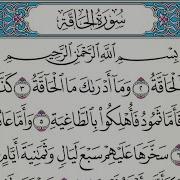 سُورَةُ الْحَاقَّةِ
بِسْمِ اللَّهِ الرَّحْمَٰنِ الرَّحِيمِ
الْحَاقَّةُ ٢ وَمَا أَدْرَىٰكَ مَا الْحَاقَّةُ ٣
فَأَمَّا ثَمُودُ فَأُهْلِكُوا بِالطَّاغِيَةِ ٥ وَأَمَّا عَا
سَخَّرَهَا عَلَيْهِمْ سَبْعَ لَيَالٍ وَثَمَٰنِيَةَ أَيَّامٍ